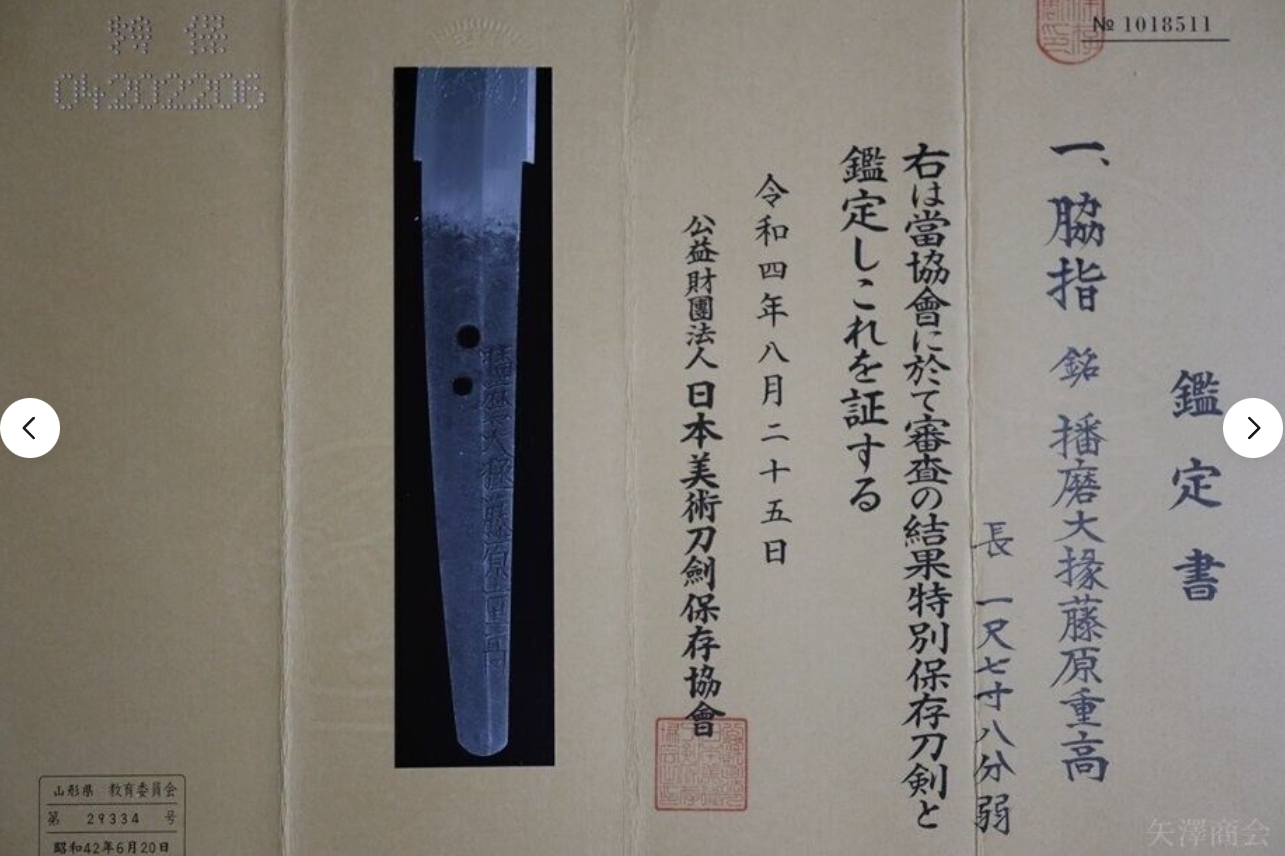 No 1018511
鑑定書
一、脇指 銘 播磨大掾藤原重高
長 一尺七寸八分弱
右は當協會に於て審査の結果特別保存刀剣と
鑑定しこれを証する
令和四年八月二十五日
公益財團法人 日本美術刀劍保存協會
播磨大掾藤原重高
特保
04202206
山形県 教育委員会
第 29334 号
昭和42年6月20日
矢澤商会